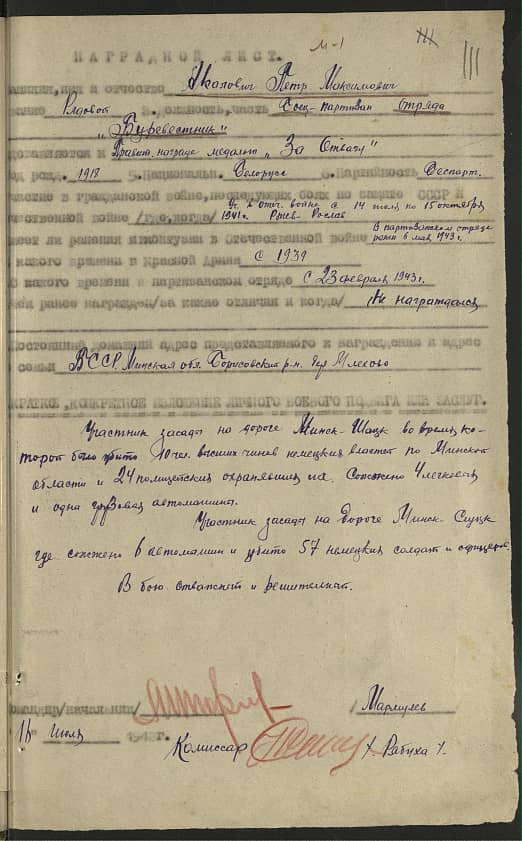 М-1
111
НАГРАДНОЙ ЛИСТ.
амилия, имя и отчество Акалович Петр Максимович
вание Рядовой 3. должность, часть Боец-партизан Отряда
„Буревестник"
едставляется к Правит. награде медаль „За Отвагу"
од рожд. 1918 5. Национальн. Белорус 6. Партийность Беспарт.
частие в гражданской войне, последующих боях по защите СССР и
течественной войне /где, когда/ Уч. в отеч. войне с 14 июля по 15 октября
1941г. Ржев
меет ли ранения и контузии в Отечественной войне В партизанском отряде
ранен 6 мая 1943г.
какого времени в Красной Армии С 1939
С какого времени в партизанском отряде С 23 февраля 1943г.
ем ранее награжден /за какие отличия и когда/ Не награждался
Постоянный домашний адрес представляемого к награждению и адрес
семьи БССР. Минская обл. Борисовский р-н. дер.
КРАТКОЕ, КОНКРЕТНОЕ ИЗЛОЖЕНИЕ ЛИЧНОГО БОЕВОГО ПОДВИГА ИЛИ ЗАСЛУГ.
Участник засады на дороге Минск-Шацк во время ко-
торой было убито 10 чел. высших чинов немецких властей по Минской
области и 24 полицейских охранявших их. Сожжено 4 легковых
и одна грузовая автомашина.
Участник засады на Дороге Минск-Слуцк
где сожжено 6 автомашин и убито 57 немецких солдат и офицеров.
В бою отважный и решительный.
омандир/начальник/
16 Июля 1943г.
Комиссар / Рабуха /.